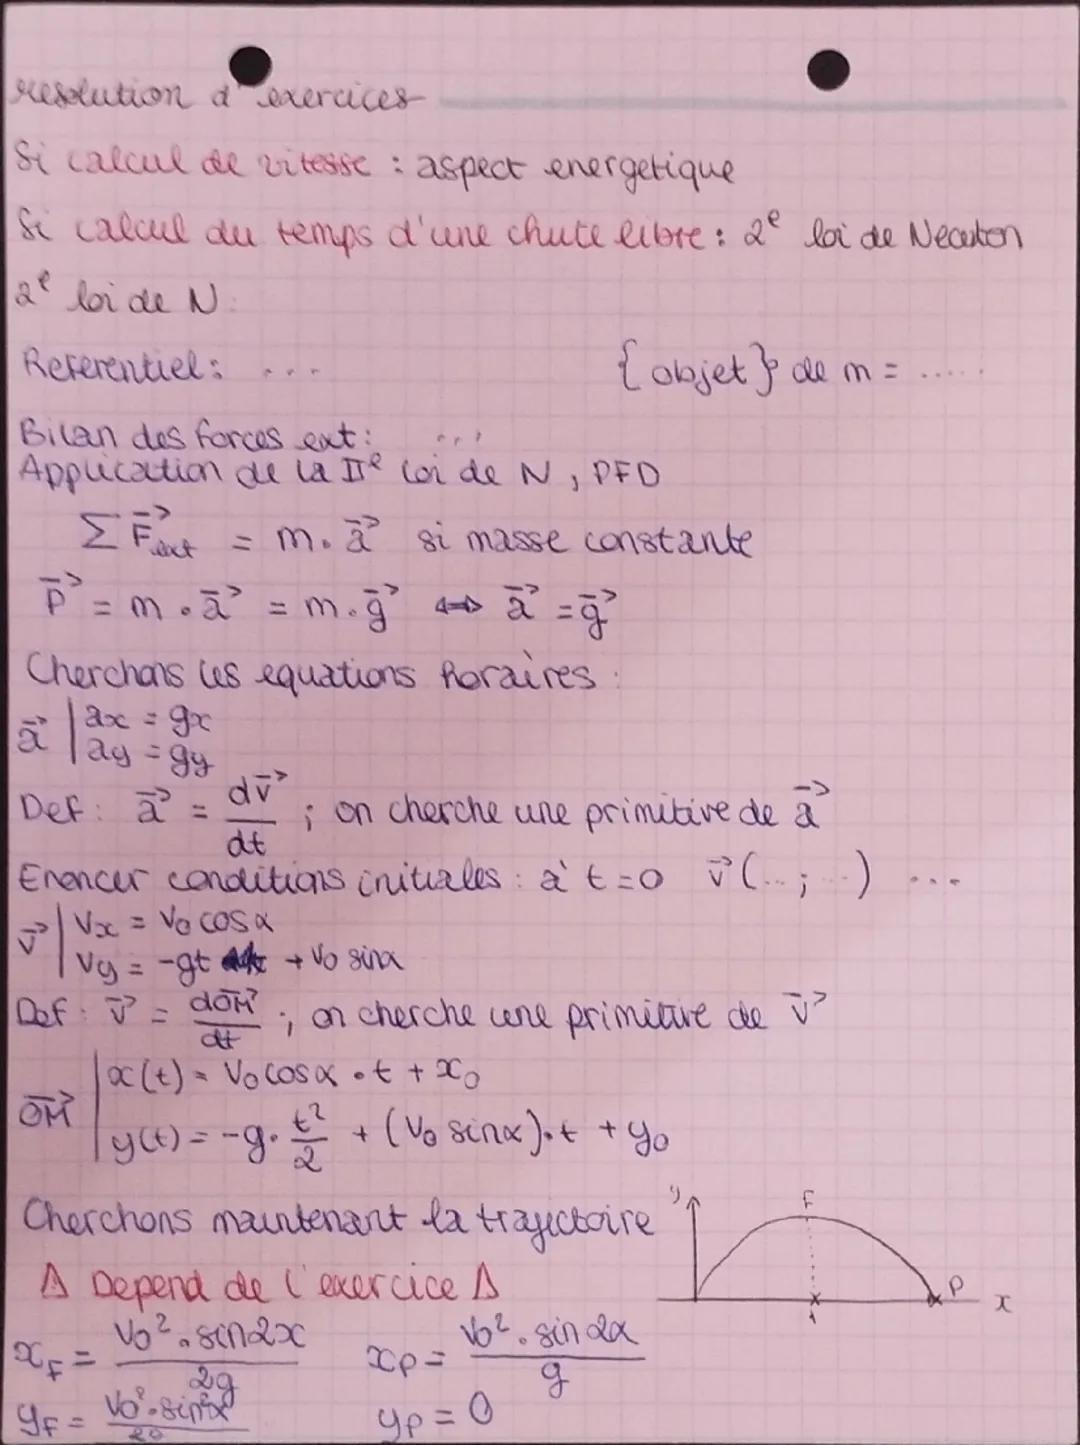 resolution d'exercices
Si calcul de vitesse : aspect energetique
Si calcul du temps d'une chute libre : 2e loi de Newton
2e loi de N :
Referentiel : ... {objet} de m = .....
Bilan des forces ext : ...
Application de la IIe loi de N, PFD
∑ F⃗ext = m. a⃗ si masse constante
P⃗ = m . a⃗ = m. g⃗ ⟺ a⃗ = g⃗
Cherchons les equations horaires :
a⃗ | ax = gx
ay = gy
Def : a⃗ = dv⃗/dt ; on cherche une primitive de a⃗
Enoncer conditions initiales : à t=0 v⃗(... ; ...) ...
v⃗ | Vx = V0 cosα
Vy = -gt + V0 sinα
Def : v⃗ = dOM⃗/dt ; on cherche une primitive de v⃗
OM⃗ | x(t) = V0 cosα . t + x0
y(t) = -g. t²/2 + (V0 sinα).t + y0
Cherchons maintenant la trajectoire
Δ Depend de l'exercice Δ
y F P x
xF = V0² . sin2x / 2g xP = V0² . sin2α / g
yF = V0² . sin²α / 2g yP = 0